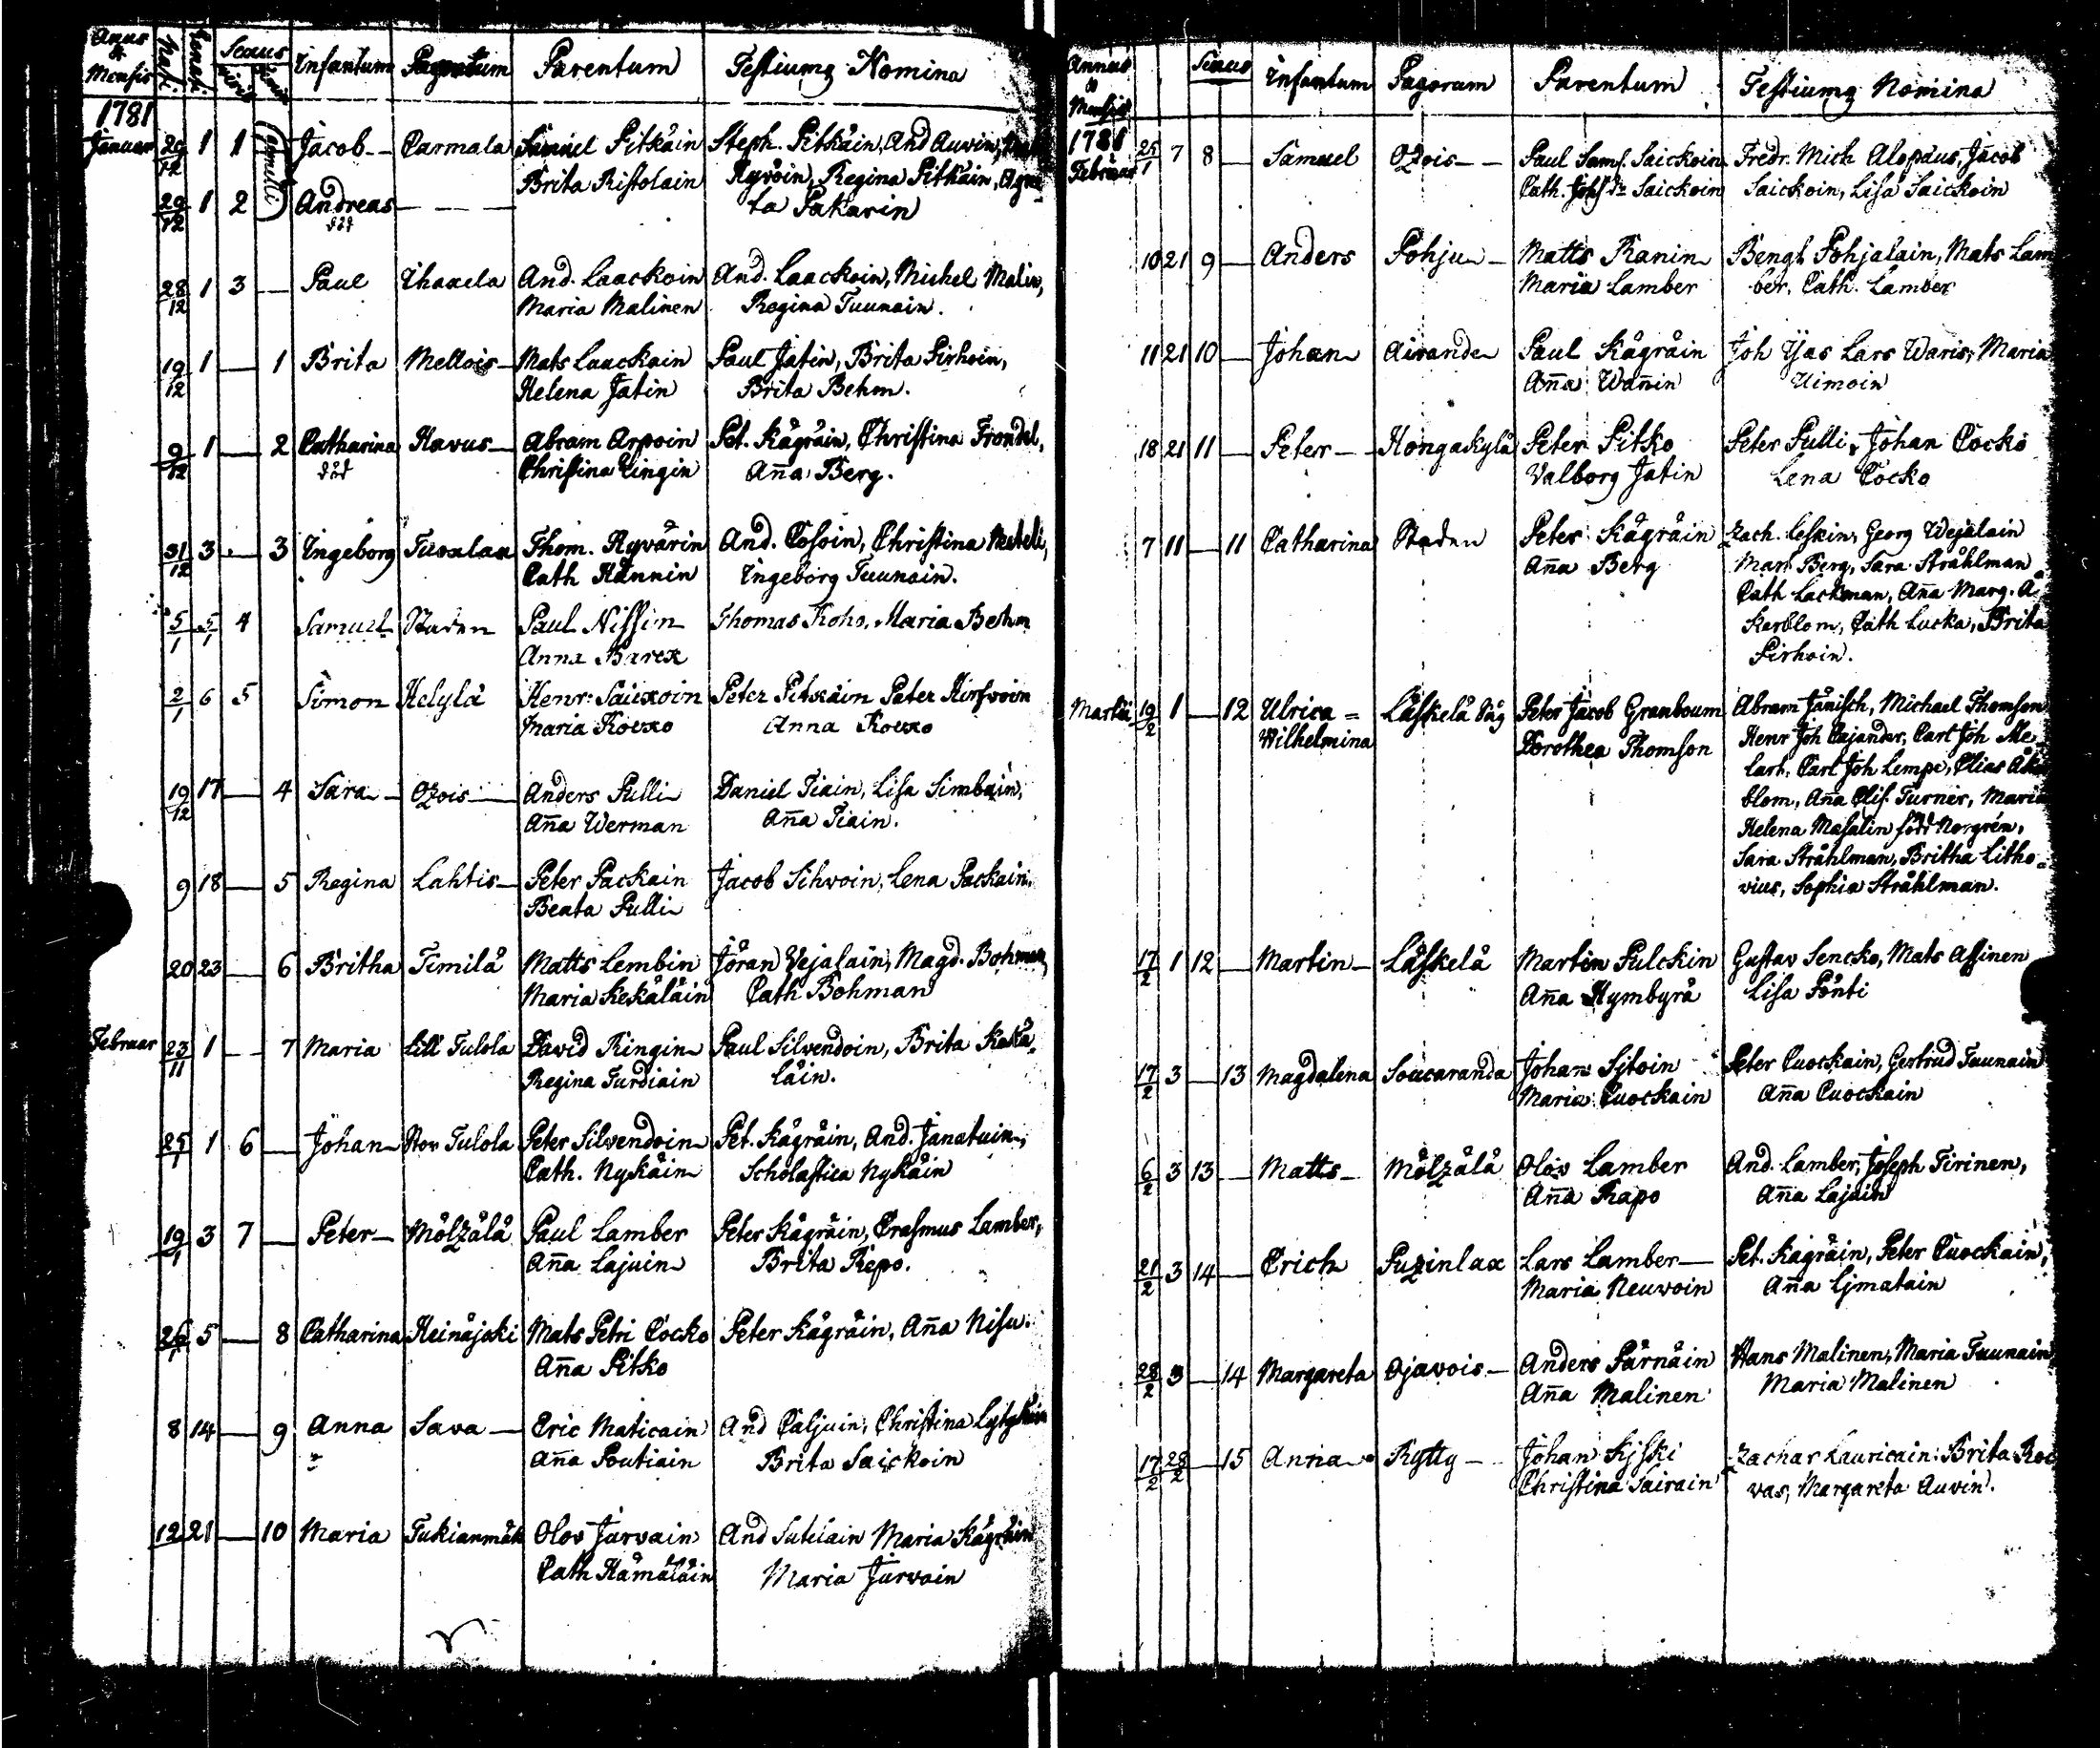 Anus & Mensis Nati Renati Sexus Viril. Infantum Pagorum Parentum Testiumq Nomina
1781
Januar 29/12 1 1 Gemelli Jacob Carmala Samuel Pitkäin Steph. Pitkäin, And Auvin,
Brita Ristolain Ryvöin, Regina Pitkäin, Agne-
29/12 1 2 Andreas — — — ta Pakarin
död
28/12 1 3 — Paul Ihaxela And. Laackoin And. Laackoin, Michel Malin,
Maria Malinen Regina Tuunain.
19/12 1 — 1 Brita Mellois Mats Laackain Paul Jatin, Brita Pirhoin,
Helena Jatin Brita Behm.
9/12 1 — 2 Catharina Havus Abram Arpoin Pet. Kägräin, Christina Frondel,
död Christina Lingin Aña Berg.
31/12 3 — 3 Ingeborg Tuoxlax Thom. Ryvärin And. Cosoin, Christina Meteli,
Cath Hännin Ingeborg Tuunain.
5/1 5/1 4 Samuel Staden Paul Nissin Thomas Koho, Maria Behm
Anna Barck
2/1 6 5 Simon Helylä Henr. Saicxoin Peter Pitkäin Peter Hirfvoin
Maria Kocko Anna Kocko
19/12 17 — 4 Sara Ozois Anders Pulli Daniel Tiain, Lisa Simbain,
Aña Werman Aña Tiain.
9 18 — 5 Regina Lahtis Peter Packain Jacob Sihvoin, Lena Packain,
Beata Pulli
20 23 — 6 Britha Temilä Matts Lembin Jöran Vejalain, Magd. Bohman,
Maria Kekäläin Cath Bohman
Februar 23/11 1 — 7 Maria Lill Tulola David Ringin Paul Silvendoin, Brita Kekä-
Regina Turdiain läin.
25/1 1 6 — Johan Stor Tulola Peter Silvendoin Pet. Kägräin, And. Janatuin,
Cath. Nykäin Scholastica Nykäin
19/1 3 7 — Peter Mölzälä Paul Lamber Peter Kägräin, Erasmus Lamber,
Aña Lajuin Brita Repo.
26/1 5 — 8 Catharina Heinäjoki Mats Petri Cocko Peter Kägräin, Aña Nisu.
Aña Pitko
8 14 — 9 Anna Sava Eric Maticain And Caljuin, Christina
Aña Poutiain Brita Saickoin
12 21 — 10 Maria Tukianmäk Olov Jarvain And Sutelain Maria Kägräin
Cath Hämäläin Maria Jurvain
Annus & Mensis Sexus Infantum Pagorum Parentum Testiumq Nomina
1781
Februar 25/1 7 8 — Samuel Ozois Paul Sams. Saickoin Fredr. Mich Alopäus, Jacob
Cath. Johsdr Saickoin Saickoin, Lisa Saickoin
10 21 9 — Anders Pohju Matts Ranin Bengt Pohjalain, Mats Lam
Maria Lamber ber, Cath. Lamber
11 21 10 — Johan Airande Paul Kägräin Joh Ijas Lars Waris, Maria
Aña Wañin Uimoin
18 21 11 — Peter Hongakylä Peter Pitko Peter Pulli, Johan Cocko
Valborg Jatin Lena Cocko
7 11 — 11 Catharina Staden Peter Kägräin Zach. Leskin, Georg Wejalain
Aña Berg Mar. Berg, Sara Stråhlman
Cath Lackman, Aña Marg. Å-
kerblom, Cath Lucka, Brita
Pirhoin.
Martii 19/2 1 — 12 Ulrica = Läskelä Såg Peter Jacob Granboum Abram Jänisch, Michael Thomson
Wilhelmina Dorothea Thomson Henr Joh Cajander, Carl Joh Me
lart, Carl Joh Lempe, Elias Åker
blom, Aña Elis. Turner, Maria
Helena Masalin född Norgrén,
Sara Stråhlman, Britha Litho-
vius, Sophia Stråhlman.
17/2 1 12 — Martin Läskelä Martin Pulckin Gustav Sencko, Mats Assinen
Aña Hymbyrä Lisa Pönti
17/2 3 — 13 Magdalena Soucaranda Johan Sitoin Peter Cuockain, Gertrud Tuunain
Maria Cuockain Aña Cuockain
6/2 3 13 — Matts Mölzälä Olov Lamber And. Lamber, Joseph Tirinen,
Aña Rapo Aña Lajuin
21/2 3 14 — Erich Puzinlax Lars Lamber Pet. Kägräin, Peter Cuockain,
Maria Neuvoin Aña Ljmatain
28/2 3 — 14 Margareta Ojavois Anders Pärnäin Hans Malinen, Maria Tuunain
Aña Malinen Maria Malinen
17/2 28/2 — 15 Anna Rytty Johan Kijski Zachar Lauricain. Brita Roc
Christina Sairain vas, Margareta Auvin.